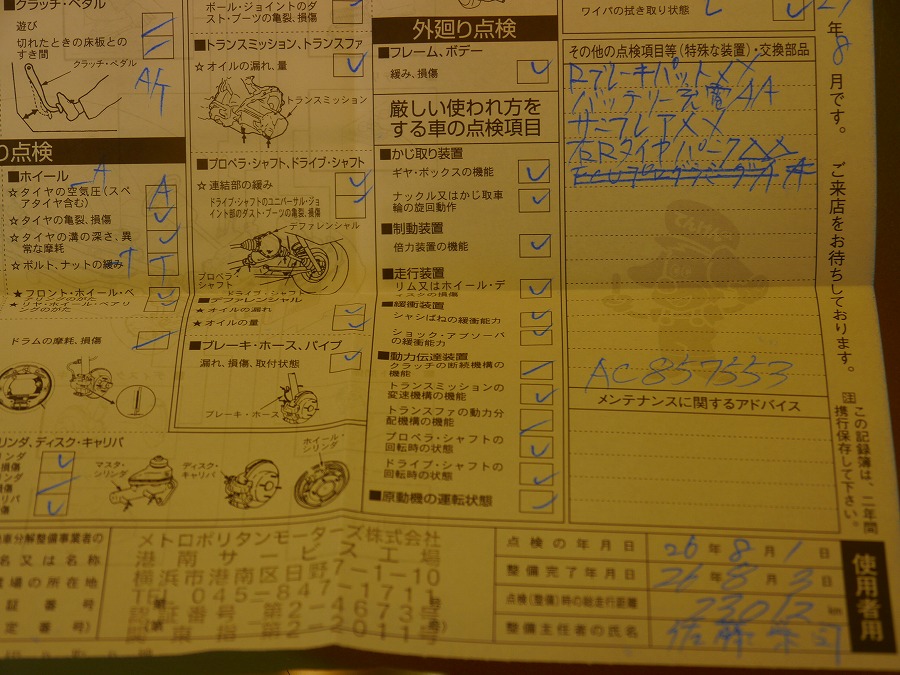 ■クラッチ・ペダル
遊び
切れたときの床板とのすき間
クラッチ・ペダル
A/T
り点検
■ホイール
A
☆タイヤの空気圧(スペアタイヤ含む)
A
☆タイヤの亀裂、損傷
☆タイヤの溝の深さ、異常な摩耗
☆ボルト、ナットの緩み
T
T
★フロント・ホイール・ベアリングのがた
★リヤ・ホイール・ベアリングのがた
ドラムの摩耗、損傷
リンダ、ディスク・キャリパ
マスタ・シリンダ
ディスク・キャリパ
ホイール・シリンダ
ボール・ジョイントのダスト・ブーツの亀裂、損傷
■トランスミッション、トランスファ
☆オイルの漏れ、量
トランスミッション
■プロペラ・シャフト、ドライブ・シャフト
☆連結部の緩み
ドライブ・シャフトのユニバーサル・ジョイント部のダスト・ブーツの亀裂、損傷
デファレンシャル
プロペラ・シャフト
ドライブ・シャフト
■デファレンシャル
★オイルの漏れ
★オイルの量
■ブレーキ・ホース、パイプ
漏れ、損傷、取付状態
ブレーキ・ホース
外廻り点検
■フレーム、ボデー
緩み、損傷
厳しい使われ方をする車の点検項目
■かじ取り装置
ギヤ・ボックスの機能
ナックル又はかじ取車輪の旋回動作
■制動装置
倍力装置の機能
■走行装置
リム又はホイール・ディスクの損傷
■緩衝装置
シャシばねの緩衝能力
ショック・アブソーバの緩衝能力
■動力伝達装置
クラッチの断続機構の機能
トランスミッションの変速機構の機能
トランスファの動力分配機構の機能
プロペラ・シャフトの回転時の状態
ドライブ・シャフトの回転時の状態
■原動機の運転状態
ワイパの拭き取り状態
その他の点検項目等(特殊な装置)・交換部品
Rブレーキパット XX
バッテリー充電 AA
サーブレア XX
右Rタイヤパンク XX
AC857553
メンテナンスに関するアドバイス
年8月です。
ご来店をお待ちしております。
注 この記録簿は、二年間携行保存して下さい。
分解整備事業者の
名又は名称
場の所在地
証番号
定番号
メトロポリタンモーターズ株式会社
港南サービス工場
横浜市港南区日野7-1-10
TEL 045-847-1711
認証番号 第2-4673号
第2-2011号
点検の年月日 26年8月1日
整備完了年月日 26年8月3日
点検(整備)時の総走行距離 23012 km
整備主任者の氏名 佐藤
使用者用